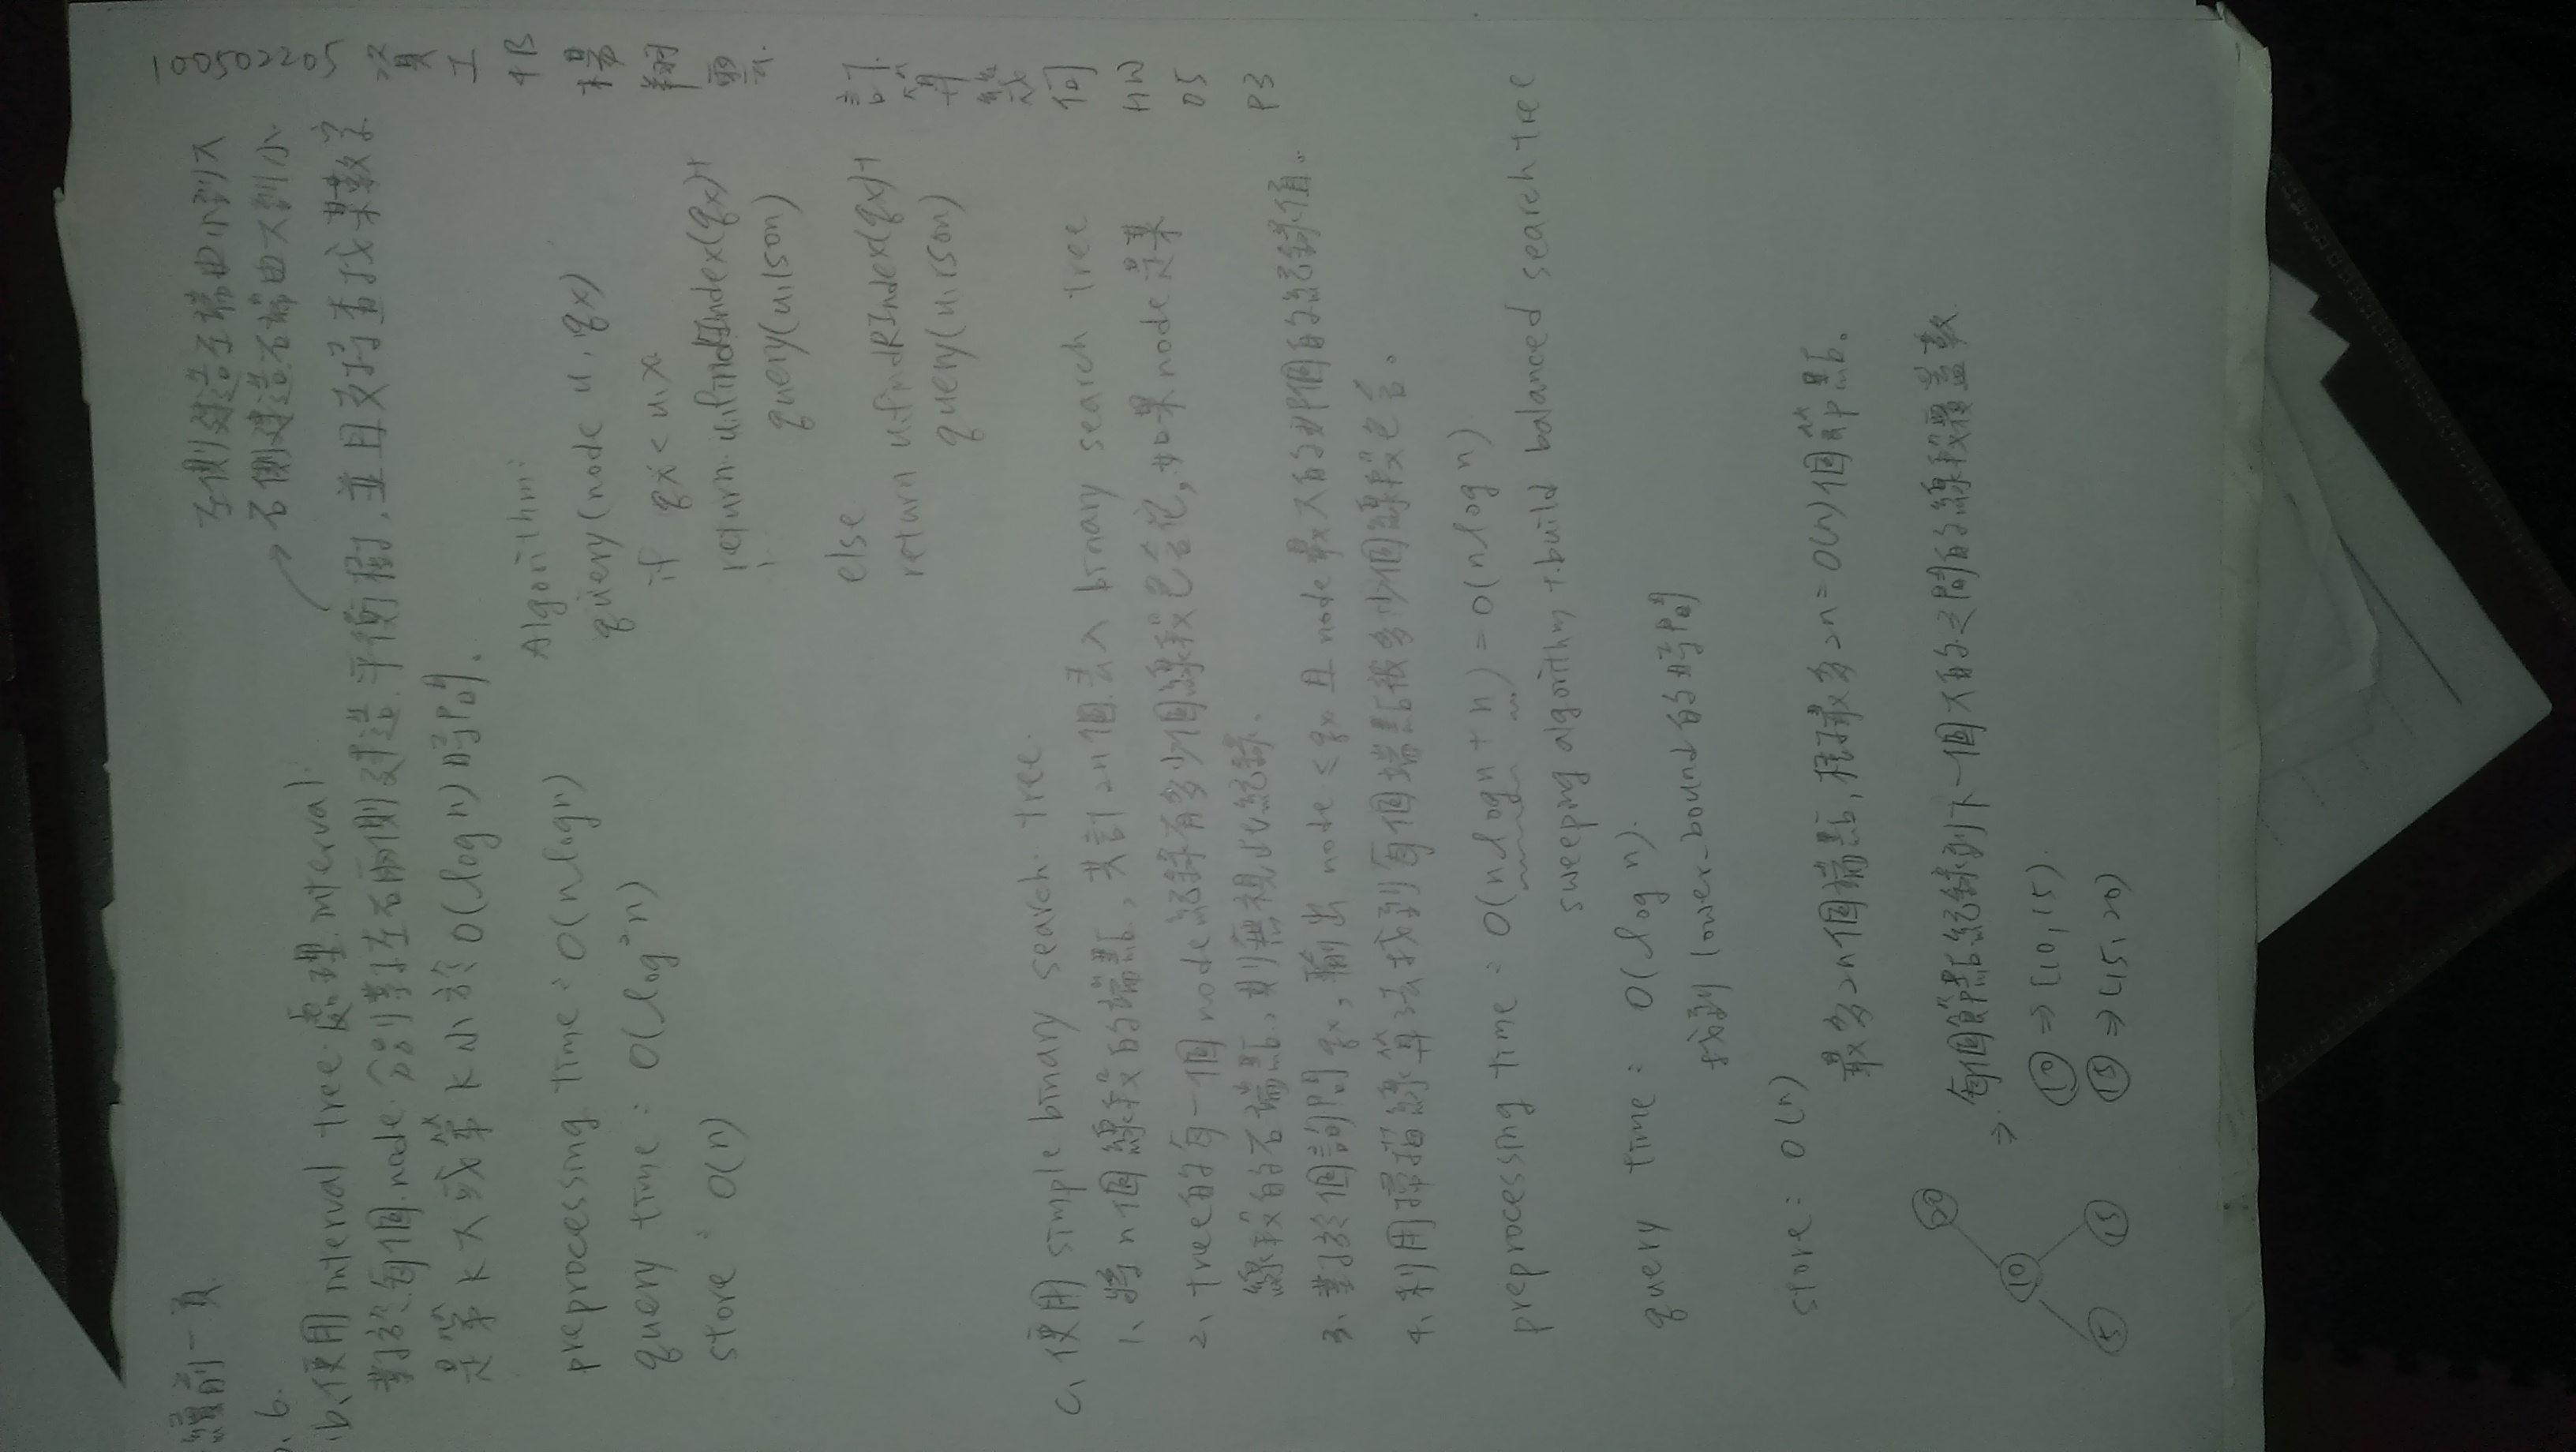 100502205 資工4B 楊翔雲 計算幾何 HW 05 P3
續前一頁
6.
b, 使用 interval tree 處理 interval.
左側建造左端由小到大
右側建造右端由大到小
對於每個 node 分別掌在左右兩側建造平衡樹, 並且支持查找某數字
是第 K 大或第 K 小於 O(log n) 時間.
preprocessing time: O(nlogn)
query time: O(log²n)
store: O(n)
Algorithm:
query(node u, qx)
if qx < u.x
return u.findLIndex(qx)+
query(u.lson)
else
return u.findRIndex(qx)+
query(u.rson)
c, 使用 simple binary search tree.
1、將 n 個線段的端點, 共計 2n 個丟入 binary search tree
2、tree 的每一個 node 紀錄有多少個線段包含它, 如果 node 是某
線段的右端點, 則無視此紀錄.
3、對於每個詢問 qx, 輸出 node ≤ qx 且 node 最大的那個的紀錄值。
4、利用掃描線算法找到每個端點被多少個線段包含。
preprocessing time: O(nlogn + n) = O(nlogn)
sweeping algorithm + build balanced search tree
query time: O(log n).
找到 lower_bound 的時間
store: O(n)
最多 2n 個端點, 最多 2n = O(n) 個節點。
⇒ 每個節點紀錄到下一個大的之間的線段覆蓋數
20
10
5
15
10 ⇒ [10, 15)
15 ⇒ [15, 20)